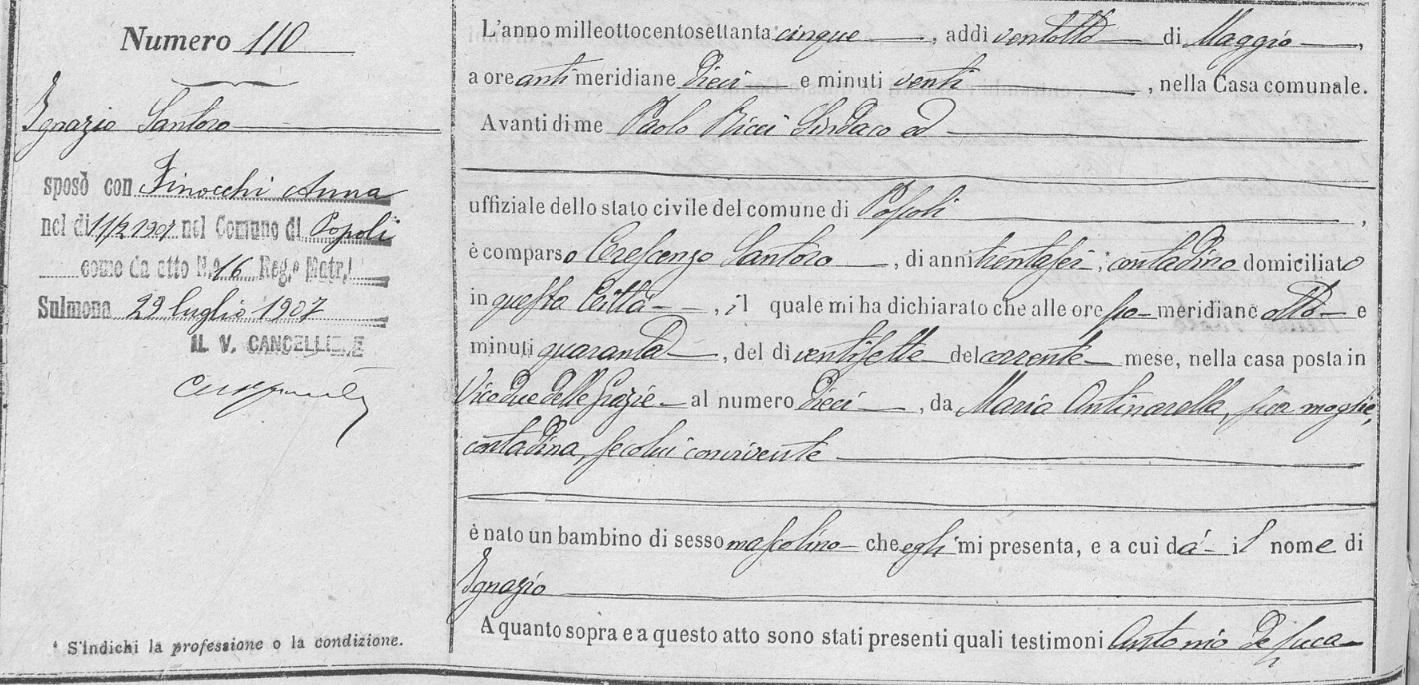 Numero 110
Ignazio Santoro
sposò con Finocchi Anna
nel dì nel Comune di Popoli
come da atto N.o 16 Reg.o Matr.
Sulmona 29 luglio 1907
IL V. CANCELLIERE
* S'indichi la professione o la condizione.
L'anno milleottocentosettanta cinque, addì ventotto di Maggio,
a ore anti meridiane dieci e minuti venti, nella Casa comunale.
Avanti di me Paolo Ricci Sindaco ed
uffiziale dello stato civile del comune di Popoli,
è comparso Crescenzo Santoro, di anni trentasei, contadino domiciliato
in questa Città, il quale mi ha dichiarato che alle ore po meridiane otto e
minuti quaranta, del dì ventisette del corrente mese, nella casa posta in
Vico due delle Grazie al numero dieci, da Maria Antinarella, sua moglie,
contadina, secolui convivente
è nato un bambino di sesso mascolino che egli mi presenta, e a cui dà il nome di
Ignazio
A quanto sopra e a questo atto sono stati presenti quali testimoni Antonio de Luca